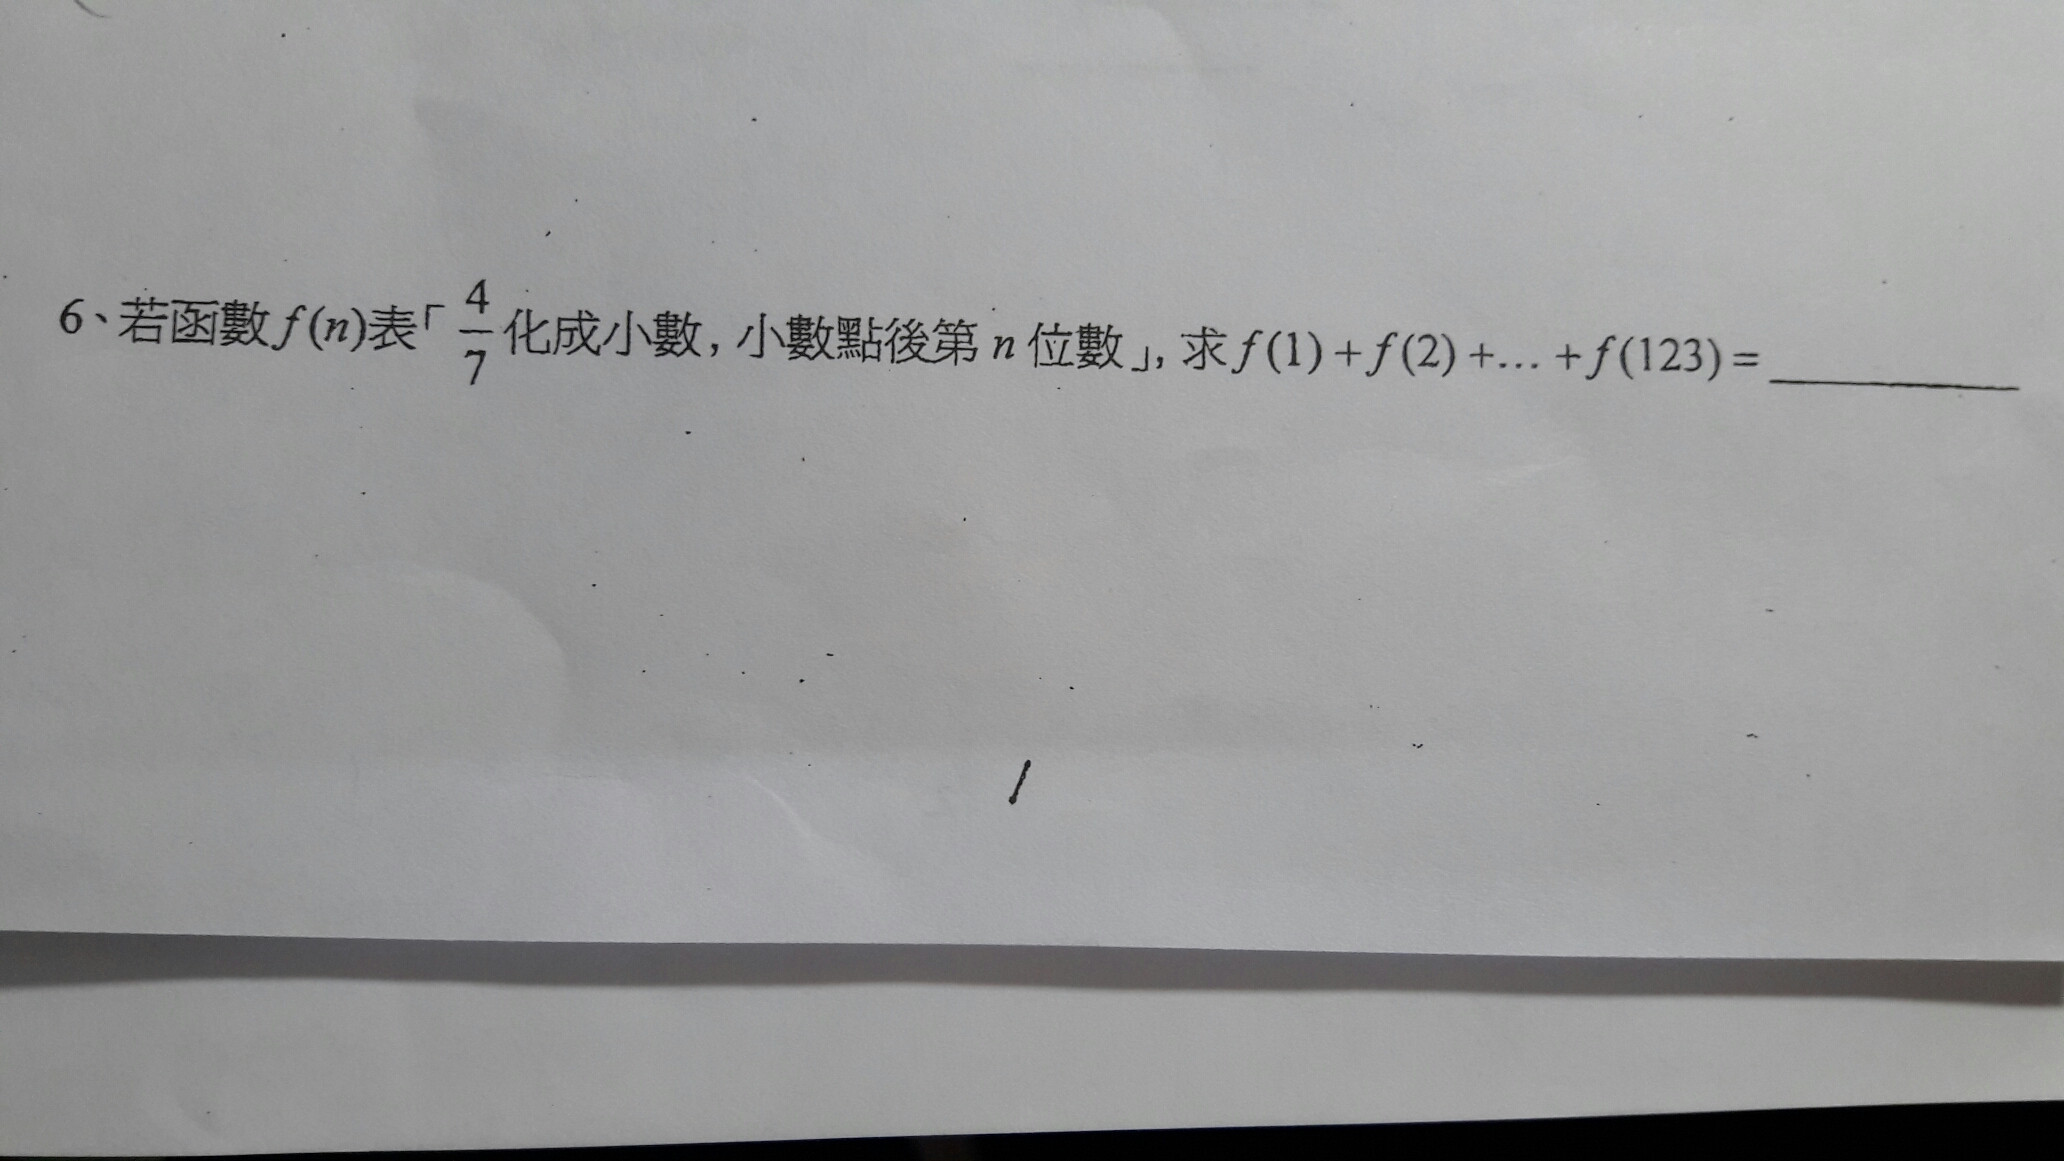 6、若函數f(n)表「4/7化成小數，小數點後第n位數」，求f(1)+f(2)+…+f(123)=________